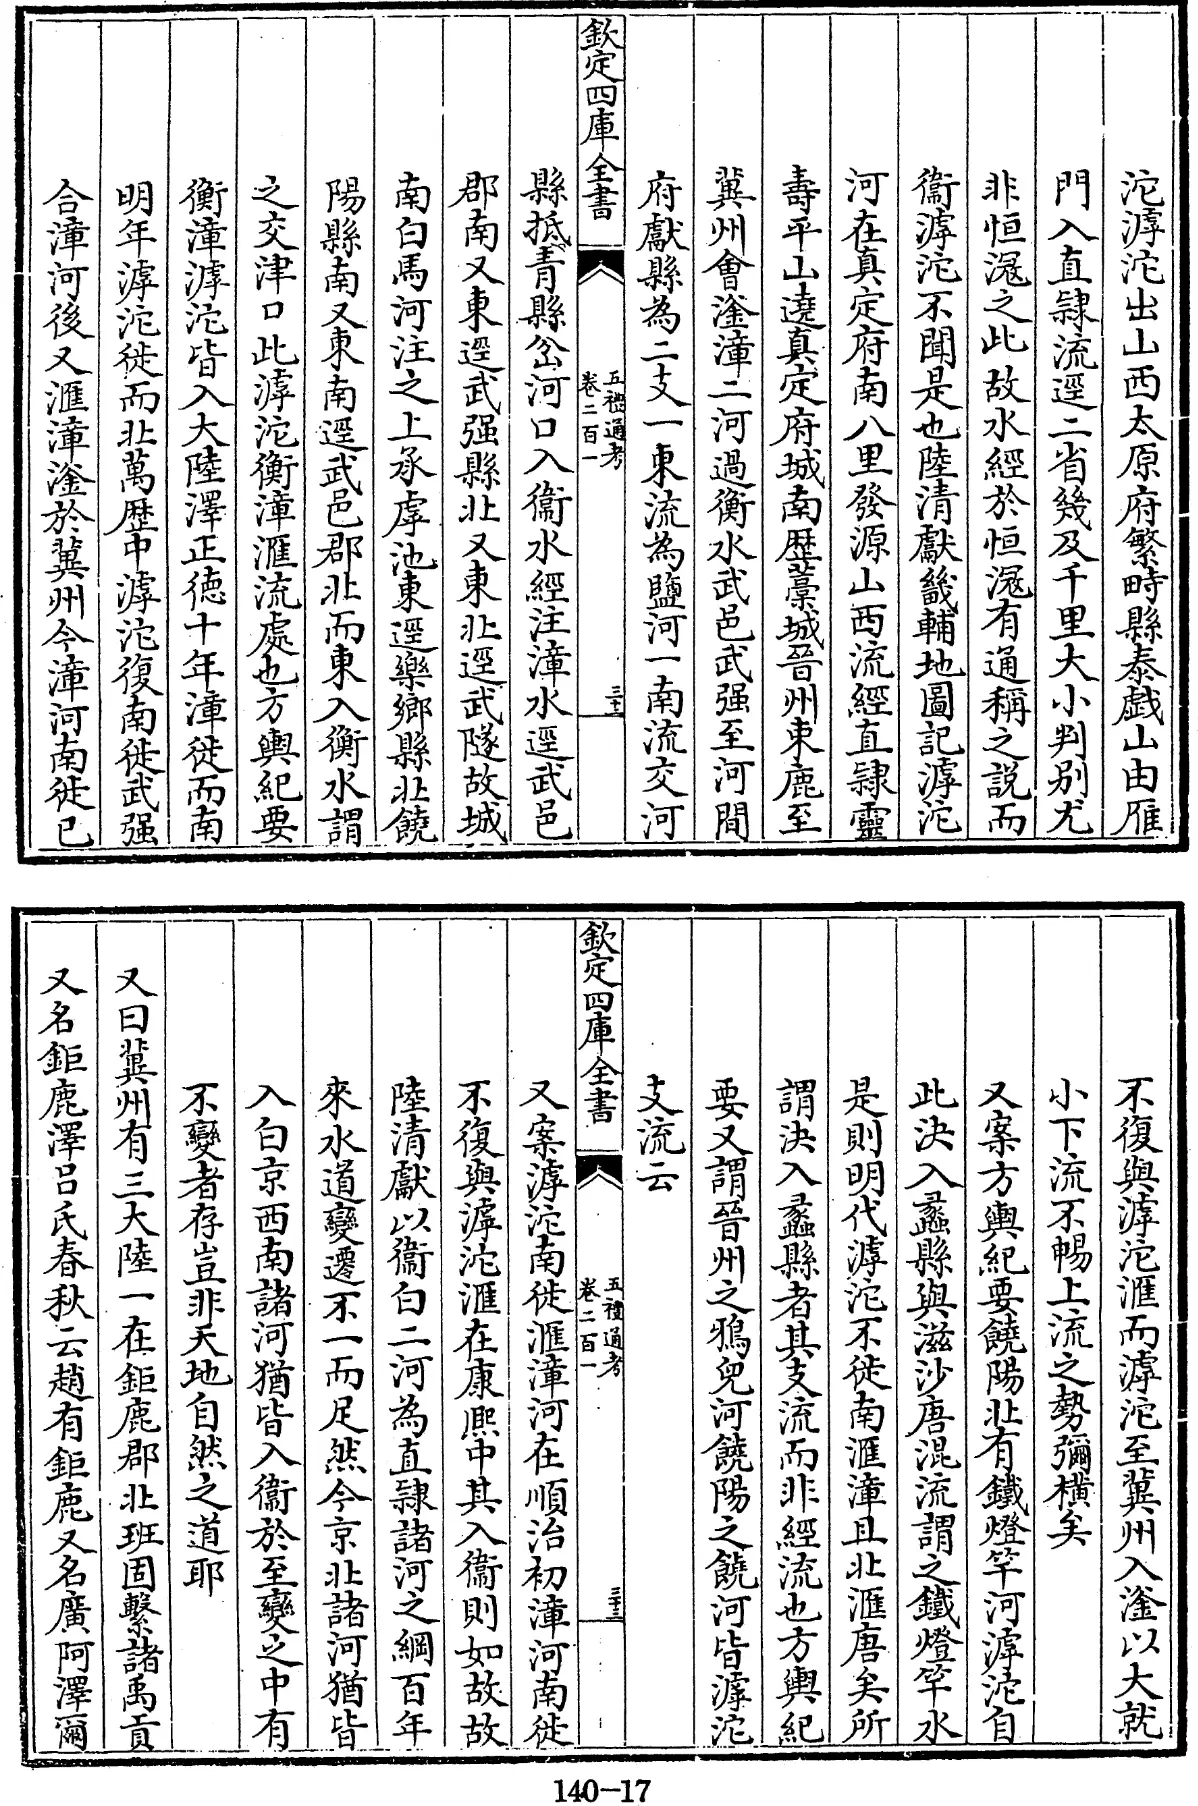 沱滹沱出山西太原府繁畤縣泰戲山由雁
門入直隸流逕二省幾及千里大小判别尤
非恒滱之此故水經於恒滱有通稱之説而
衞滹沱不聞是也陸清獻畿輔地圖記滹沱
河在真定府南八里發源山西流經直隸靈
壽平山遶真定府城南歷藁城晉州束鹿至
冀州會滏漳二河過衡水武邑武强至河間
府獻縣為二支一東流為鹽河一南流交河
欽定四庫全書
五禮通考
卷二百一
三十二
縣抵青縣岔河口入衞水經注漳水逕武邑
郡南又東逕武强縣北又東北逕武隧故城
南白馬河注之上承虖池東逕樂鄉縣北饒
陽縣南又東南逕武邑郡北而東入衡水謂
之交津口此滹沱衡漳滙流處也方輿紀要
衡漳滹沱皆入大陸澤正德十年漳徙而南
明年滹沱徙而北萬歷中滹沱復南徙武强
合漳河後又滙漳滏於冀州今漳河南徙已
不復與滹沱滙而滹沱至冀州入滏以大就
小下流不暢上流之勢彌横矣
又案方輿紀要饒陽北有鐵燈竿河滹沱自
此決入蠡縣與滋沙唐混流謂之鐵燈竿水
是則明代滹沱不徙南滙漳且北滙唐矣所
謂決入蠡縣者其支流而非經流也方輿紀
要又謂晉州之鴉兒河饒陽之饒河皆滹沱
支流云
欽定四庫全書
五禮通考
卷二百一
三十三
又案滹沱南徙滙漳河在順治初漳河南徙
不復與滹沱滙在康熙中其入衞則如故故
陸清獻以衞白二河為直隸諸河之綱百年
來水道變遷不一而足然今京北諸河猶皆
入白京西南諸河猶皆入衞於至變之中有
不變者存豈非天地自然之道耶
又曰冀州有三大陸一在鉅鹿郡北班固繫諸禹貢
又名鉅鹿澤呂氏春秋云趙有鉅鹿又名廣阿澤爾
140-17